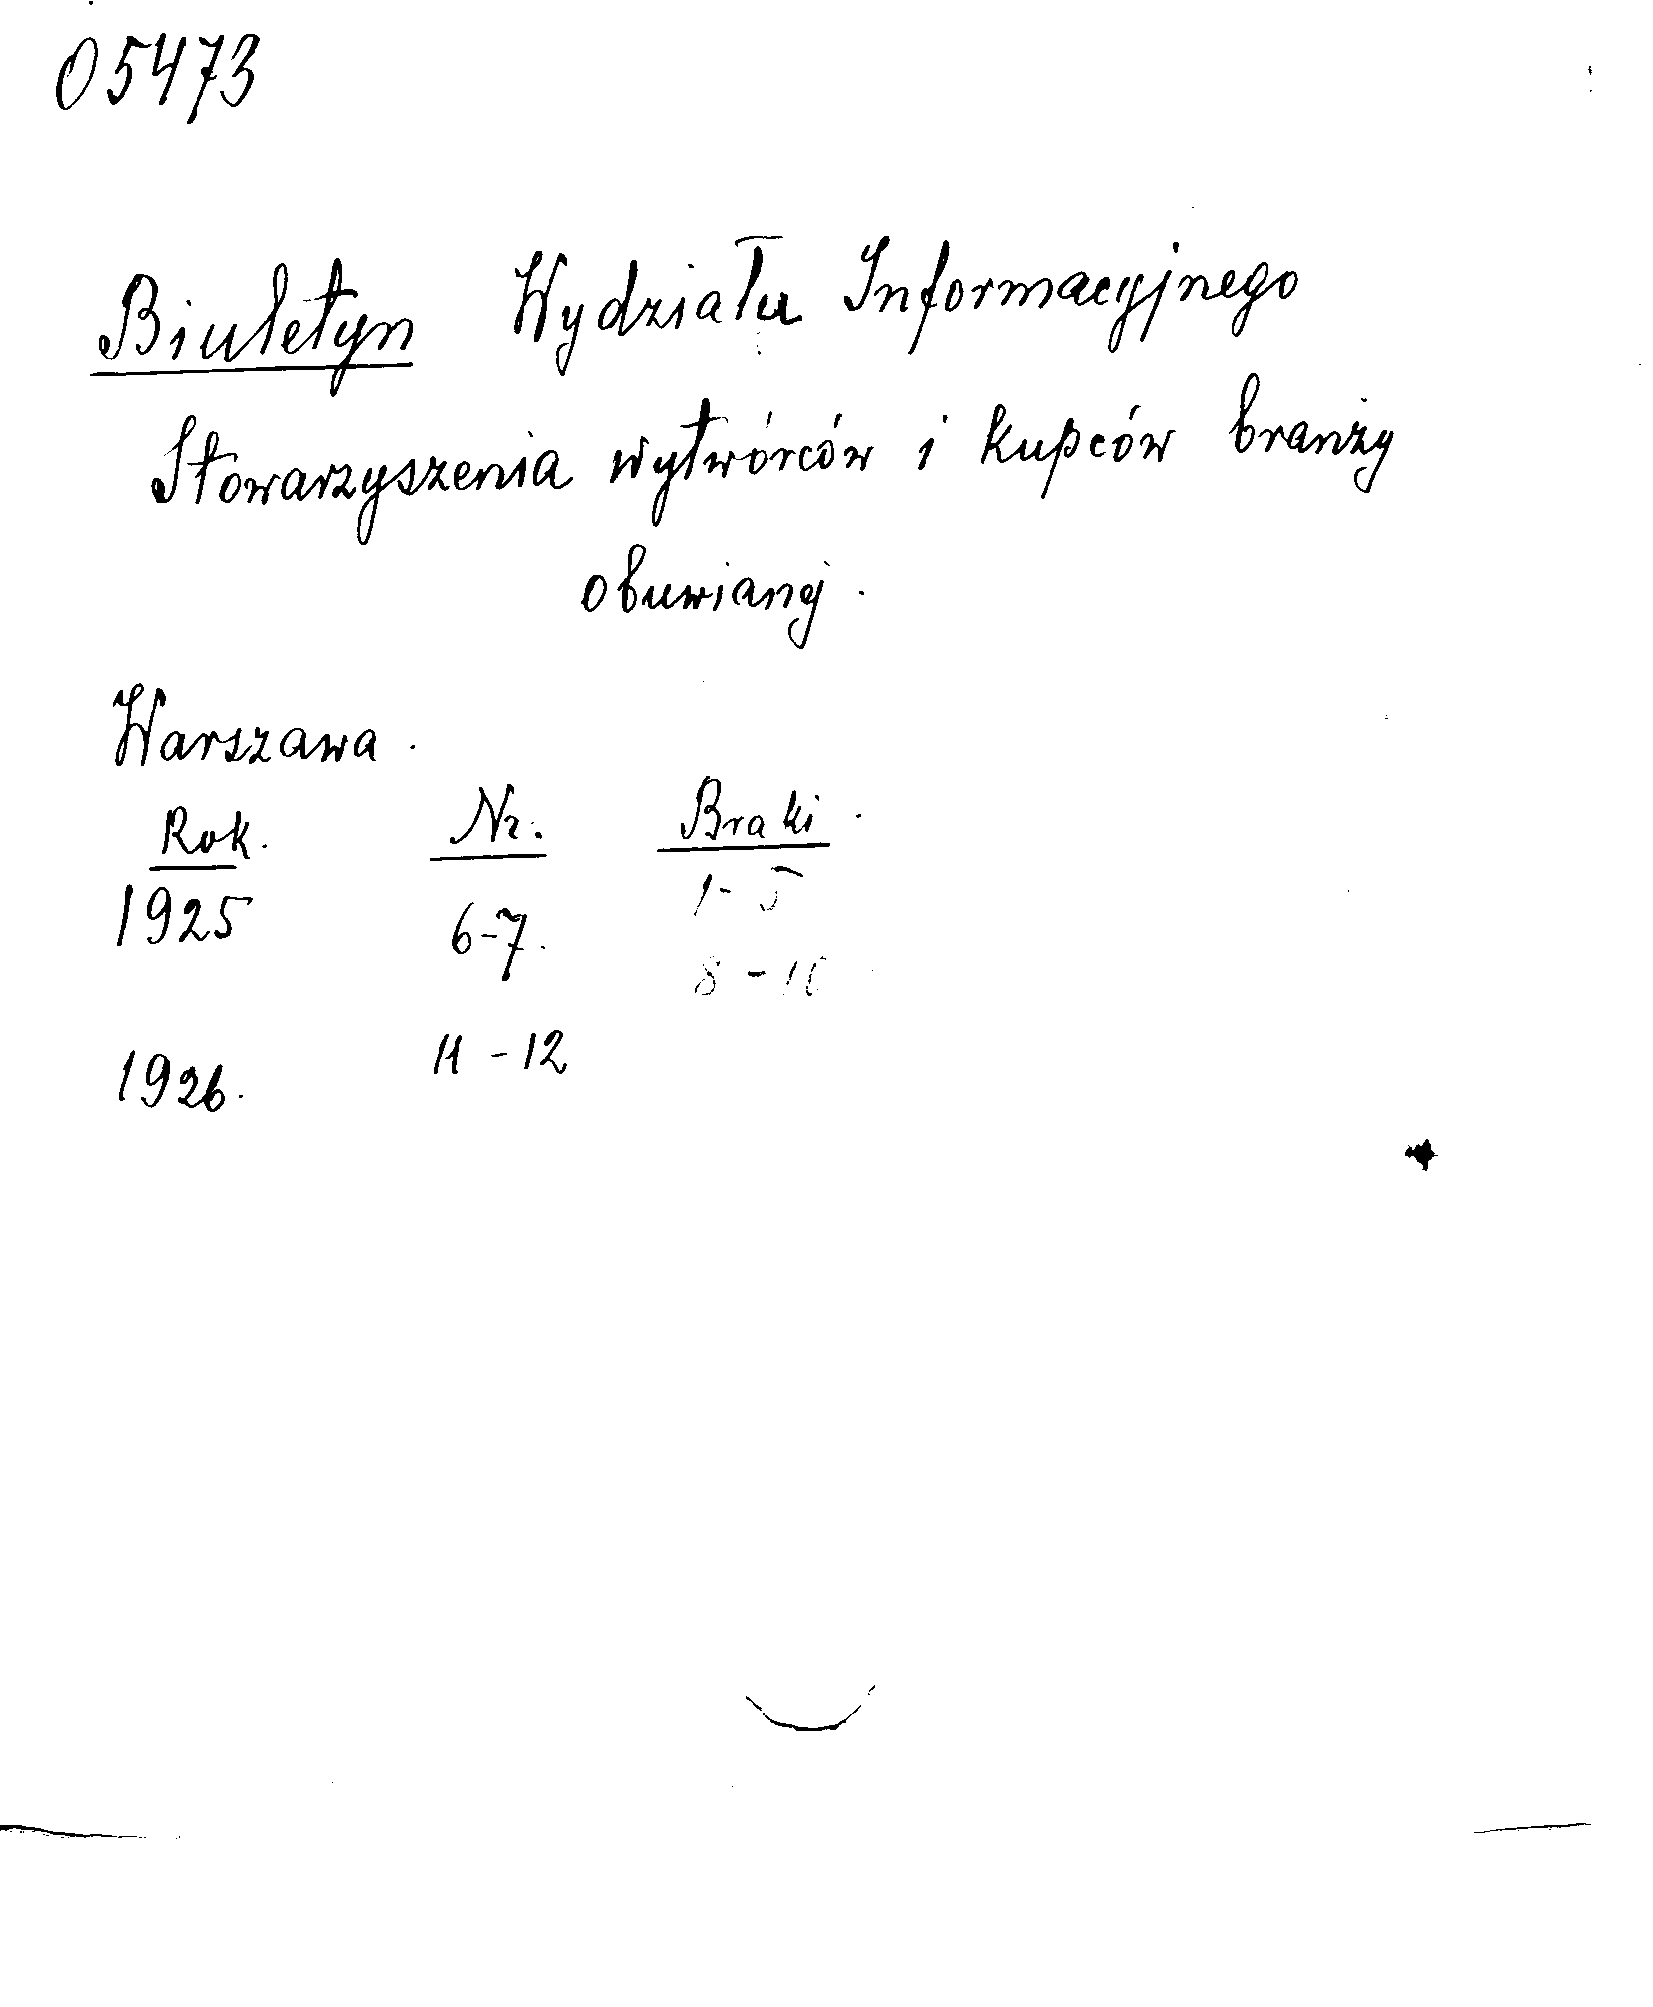 05473
Biuletyn Wydziału Informacyjnego
Stowarzyszenia wytwórców i kupców branży
obuwianej.
Warszawa.
Rok. Nr. Braki.
1925 6-7. 1-5
8-10
11-12
1926.